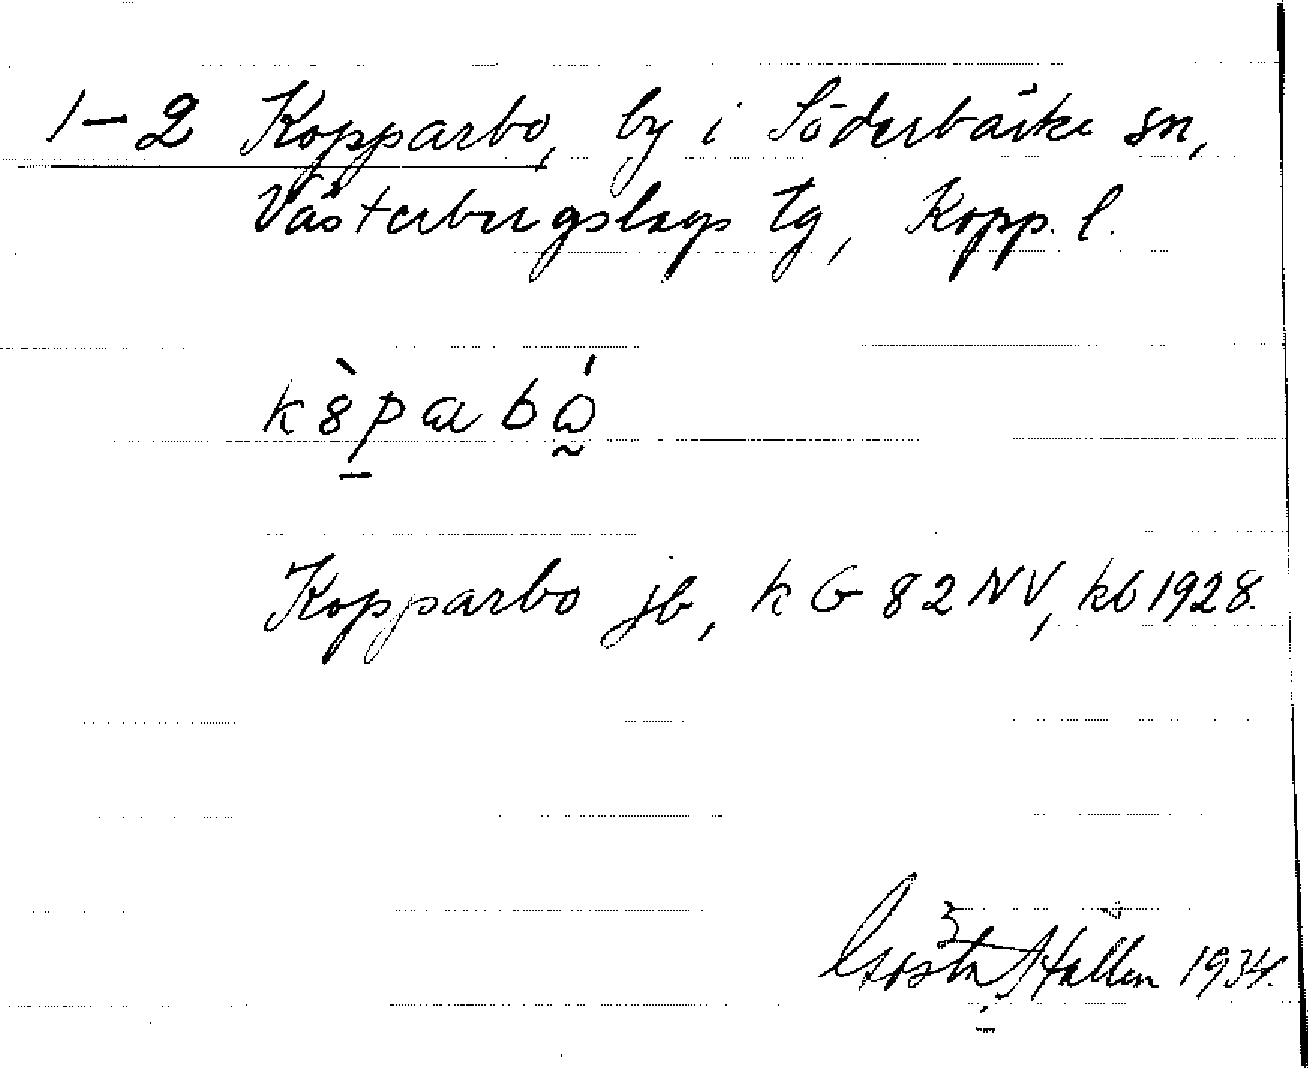 1-2 Kopparbo, by i Söderbärke sn,
Västerbergslags tg, Kopp. l.
k8̀p̱abǻ̰
Kopparbo jb, k G 82 NV, kb 1928.
Gösta Hallen 1934.